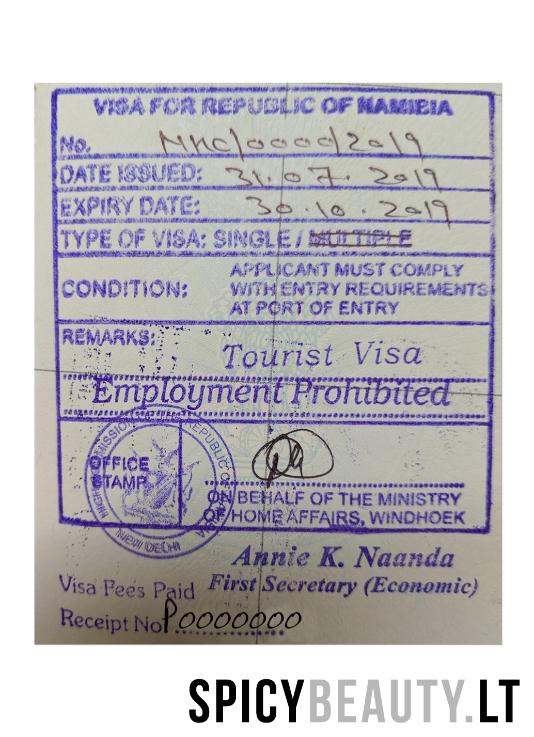 VISA FOR REPUBLIC OF NAMIBIA
No. NHC/0000/2019
DATE ISSUED: 31.07.2019
EXPIRY DATE: 30.10.2019
TYPE OF VISA: SINGLE / MULTIPLE
CONDITION: APPLICANT MUST COMPLY
WITH ENTRY REQUIREMENTS
AT PORT OF ENTRY
REMARKS: Tourist Visa
Employment Prohibited
OFFICE
STAMP
HIGH COMMISSION OF THE REPUBLIC OF NAMIBIA
NEW DELHI
ON BEHALF OF THE MINISTRY
OF HOME AFFAIRS, WINDHOEK
Annie K. Naanda
First Secretary (Economic)
Visa Fees Paid
Receipt No P0000000
SPICYBEAUTY.LT